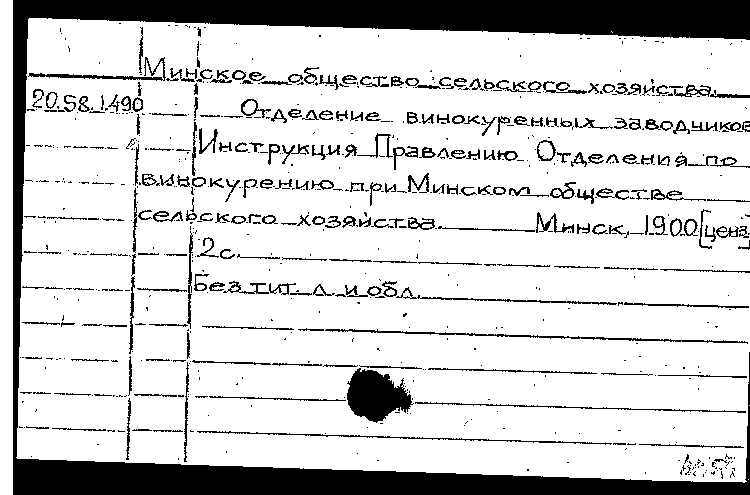 Минское общество сельского хозяйства.
20.58.1490 Отделение винокуренных заводчиков
Инструкция Правлению Отделения по
винокурению при Минском обществе
сельского хозяйства. Минск, 1900 [ценз
2 с.
Без тит. л. и обл.